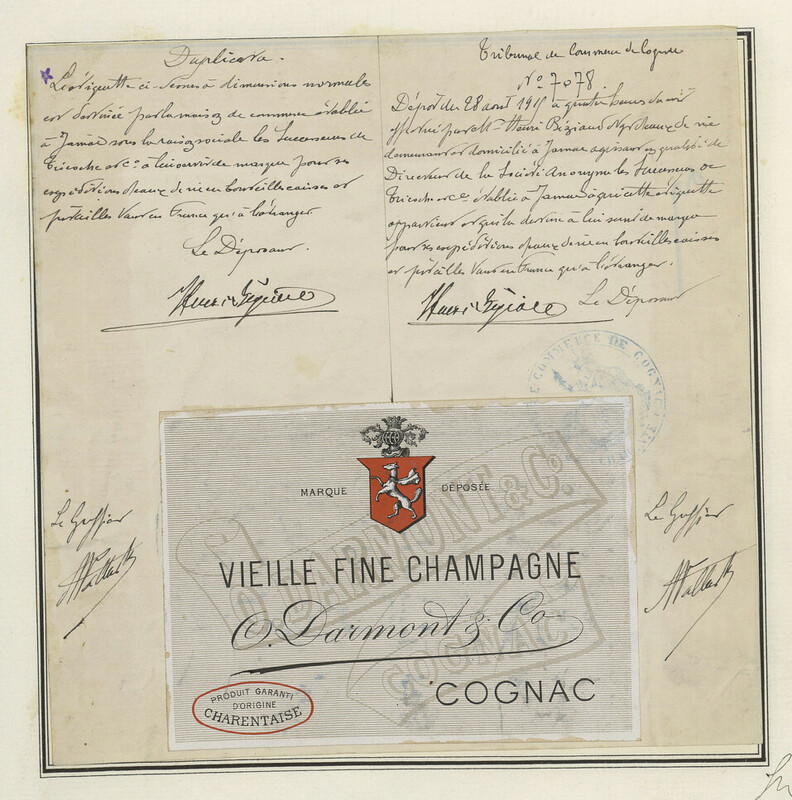 Duplicata.
L'étiquette ci-dessous à dimensions normales
est destinée par la maison de commerce établie
à Jarnac sous la raison sociale les Successeurs de
Tricoche et Cie à lui servir de marque pour ses
expéditions d'eaux de vie en bouteilles caisses et
futailles tant en France qu'à l'étranger
Le Déposant.
Tribunal de Commerce de Cognac
No 7078.
Dépôt du 28 août à quatre heures du soir
effectué par Mr Henri eaux de vie
demeurant et domicilié à Jarnac agissant en qualité de
Directeur de la Société Anonyme les Successeurs de
Tricoche et Cie établie à Jarnac à qui cette étiquette
appartient et qui la destine à lui servir de marque
pour ses expéditions d'eaux de vie en bouteilles caisses
et futailles tant en France qu'à l'étranger.
Le Déposant
COMMERCE DE COGNAC
Le Greffier
Le Greffier
MARQUE DÉPOSÉE
O. DARMONT & Co.
COGNAC
VIEILLE FINE CHAMPAGNE
O. Darmont & Co
COGNAC
PRODUIT GARANTI
D'ORIGINE
CHARENTAISE